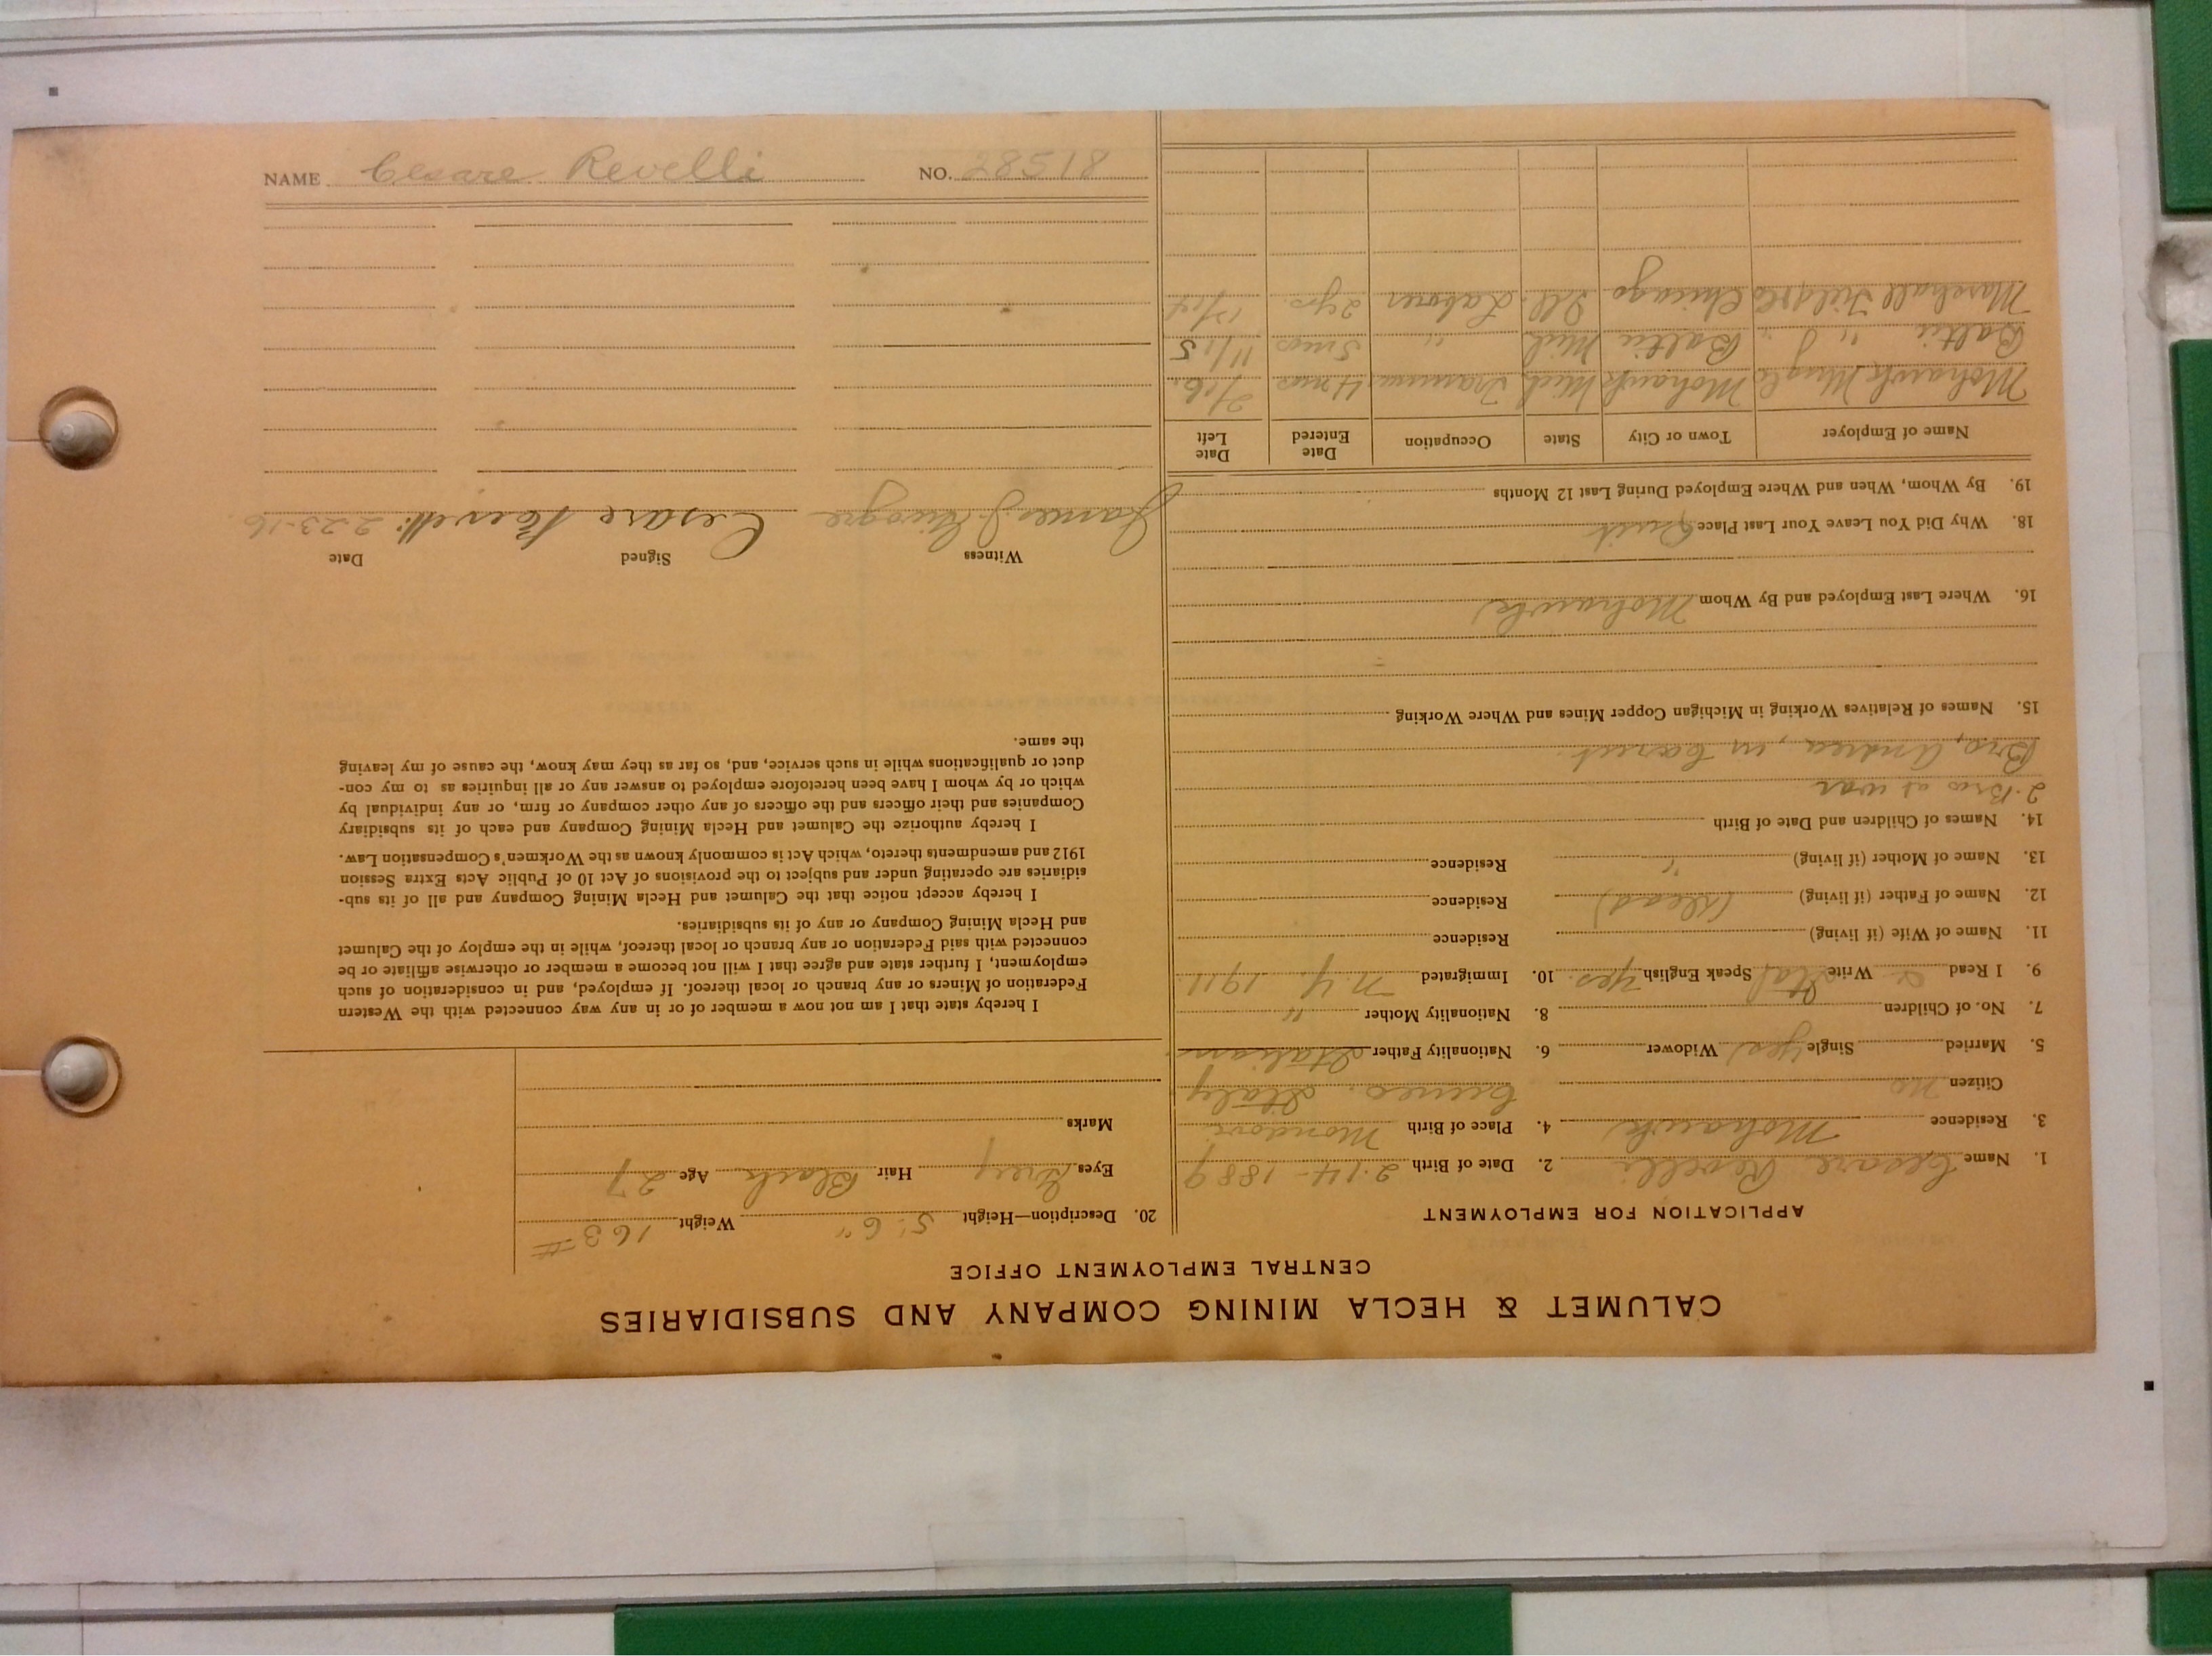 CALUMET & HECLA MINING COMPANY AND SUBSIDIARIES
CENTRAL EMPLOYMENT OFFICE
APPLICATION FOR EMPLOYMENT
1. Name Cesare Revelli 2. Date of Birth 2-14-1889
3. Residence Mohawk 4. Place of Birth Mondovi
Citizen No Cuneo. Italy
5. Married Single (yes) Widower 6. Nationality Father Italian
7. No. of Children 8. Nationality Mother "
9. I Read & Write Ital Speak English yes. 10. Immigrated N.Y. 1911
11. Name of Wife (if living) Residence
12. Name of Father (if living) (dead) Residence
13. Name of Mother (if living) " Residence
14. Names of Children and Date of Birth
2. Bros at war
Bro, Andrea, in
15. Names of Relatives Working in Michigan Copper Mines and Where Working
16. Where Last Employed and By Whom Mohawk
18. Why Did You Leave Your Last Place Quit
19. By Whom, When and Where Employed During Last 12 Months
Name of Employer Town or City State Occupation Date Entered Date Left
Mohawk Mohawk Mich 4 mos 2/16
Baltic " " Baltic Mich " 5 mos 11/15
Marshall Field Chicago Ill. Laborer 2 yrs.
20. Description—Height 5' 6" Weight 163 #
Eyes Grey Hair Black Age 27
Marks
I hereby state that I am not now a member of or in any way connected with the Western
Federation of Miners or any branch or local thereof. If employed, and in consideration of such
employment, I further state and agree that I will not become a member or otherwise affiliate or be
connected with said Federation or any branch or local thereof, while in the employ of the Calumet
and Hecla Mining Company or any of its subsidiaries.
I hereby accept notice that the Calumet and Hecla Mining Company and all of its sub-
sidiaries are operating under and subject to the provisions of Act 10 of Public Acts Extra Session
1912 and amendments thereto, which Act is commonly known as the Workmen's Compensation Law.
I hereby authorize the Calumet and Hecla Mining Company and each of its subsidiary
Companies and their officers and the officers of any other company or firm, or any individual by
which or by whom I have been heretofore employed to answer any or all inquiries as to my con-
duct or qualifications while in such service, and, so far as they may know, the cause of my leaving
the same.
Witness Signed Date
James Cesare Revelli 2-23-16.
NAME Cesare Revelli NO. 28518